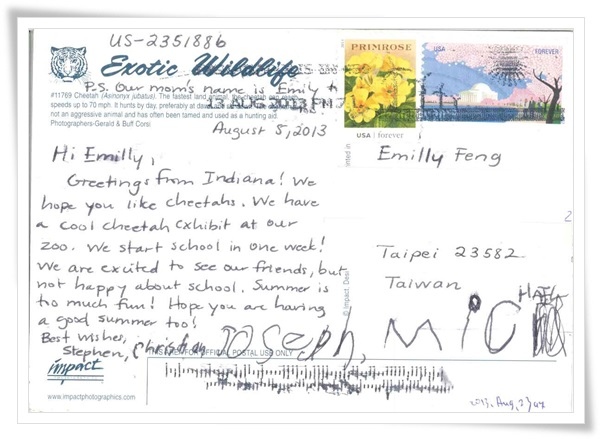 US-2351886
Exotic Wildlife
P.S. Our mom's name is Emily
#11769 Cheetah (Acinonyx jubatus). The fastest land animal, the cheetah can reach
speeds up to 70 mph. It hunts by day, preferably at
not an aggressive animal and has often been tamed and used as a hunting aid.
Photographers-Gerald & Buff Corsi
13 AUG 2013 PM 7
August 5, 2013
PRIMROSE
USA forever
USA FOREVER
Hi Emilly,
Greetings from Indiana! We
hope you like cheetahs. We have
a cool cheetah exhibit at our
zoo. We start school in one week!
We are excited to see our friends, but
not happy about school. Summer is
too much fun! Hope you are having
a good summer too!
Best wishes,
Stephen, Christian, Joseph,
Emilly Feng
Taipei 23582
Taiwan
© Impact,
THIS AREA FOR OFFICIAL POSTAL USE ONLY
impact
www.impactphotographics.com
2013, Aug, 21
2